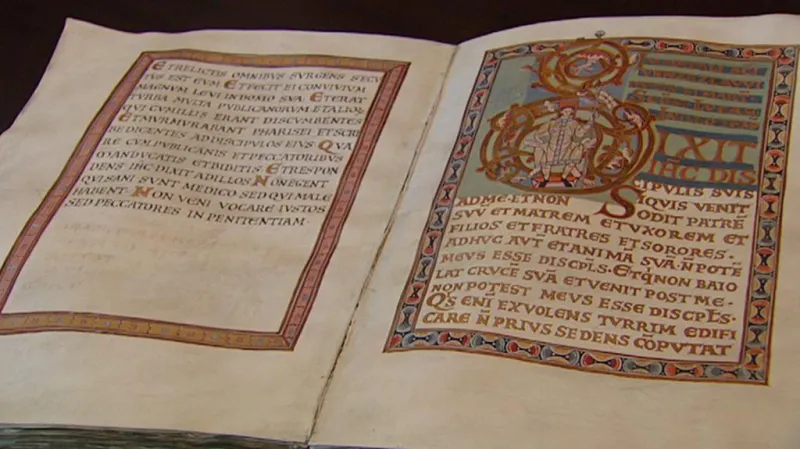 ET RELICTIS OMNIBUS SURGENS SECU
TUS EST EUM ET FECIT EI CONVIVIUM
MAGNUM LEVI IN DOMO SUA ET ERAT
TURBA MULTA PUBLICANORUM ET ALIOR
QUI CUM ILLIS ERANT DISCUMBENTES
ET MURMURABANT PHARISEI ET SCRI
BE DICENTES AD DISCIPULOS EIUS QUA
RE CUM PUBLICANIS ET PECCATORIBUS
MANDUCATIS ET BIBITIS ET RESPON
DENS IHC DIXIT AD ILLOS NON EGENT
QUI SANI SUNT MEDICO SED QUI MALE
HABENT. NON VENI VOCARE IUSTOS
SED PECCATORES IN PENITENTIAM.
DIXIT
IHC DIS
CIPULIS SUIS
SI QUIS VENIT
AD ME. ET NON ODIT PATRĒ
SUŪ ET MATREM ET UXOREM ET
FILIOS ET FRATRES ET SORORES.
ADHUC AUT̄ ET ANIMĀ SUĀ. N̄ POTĒ
MEUS ESSE DISCPLS. ET Q̄ NON BAIO
LAT CRUCĒ SUĀ ET VENIT POST ME.
NON POTEST MEUS ESSE DISCPL̄S.
QS ENĪ EX VOLENS TURRIM EDIFI
CARE N̄ PRIUS SEDENS CŌPUTAT